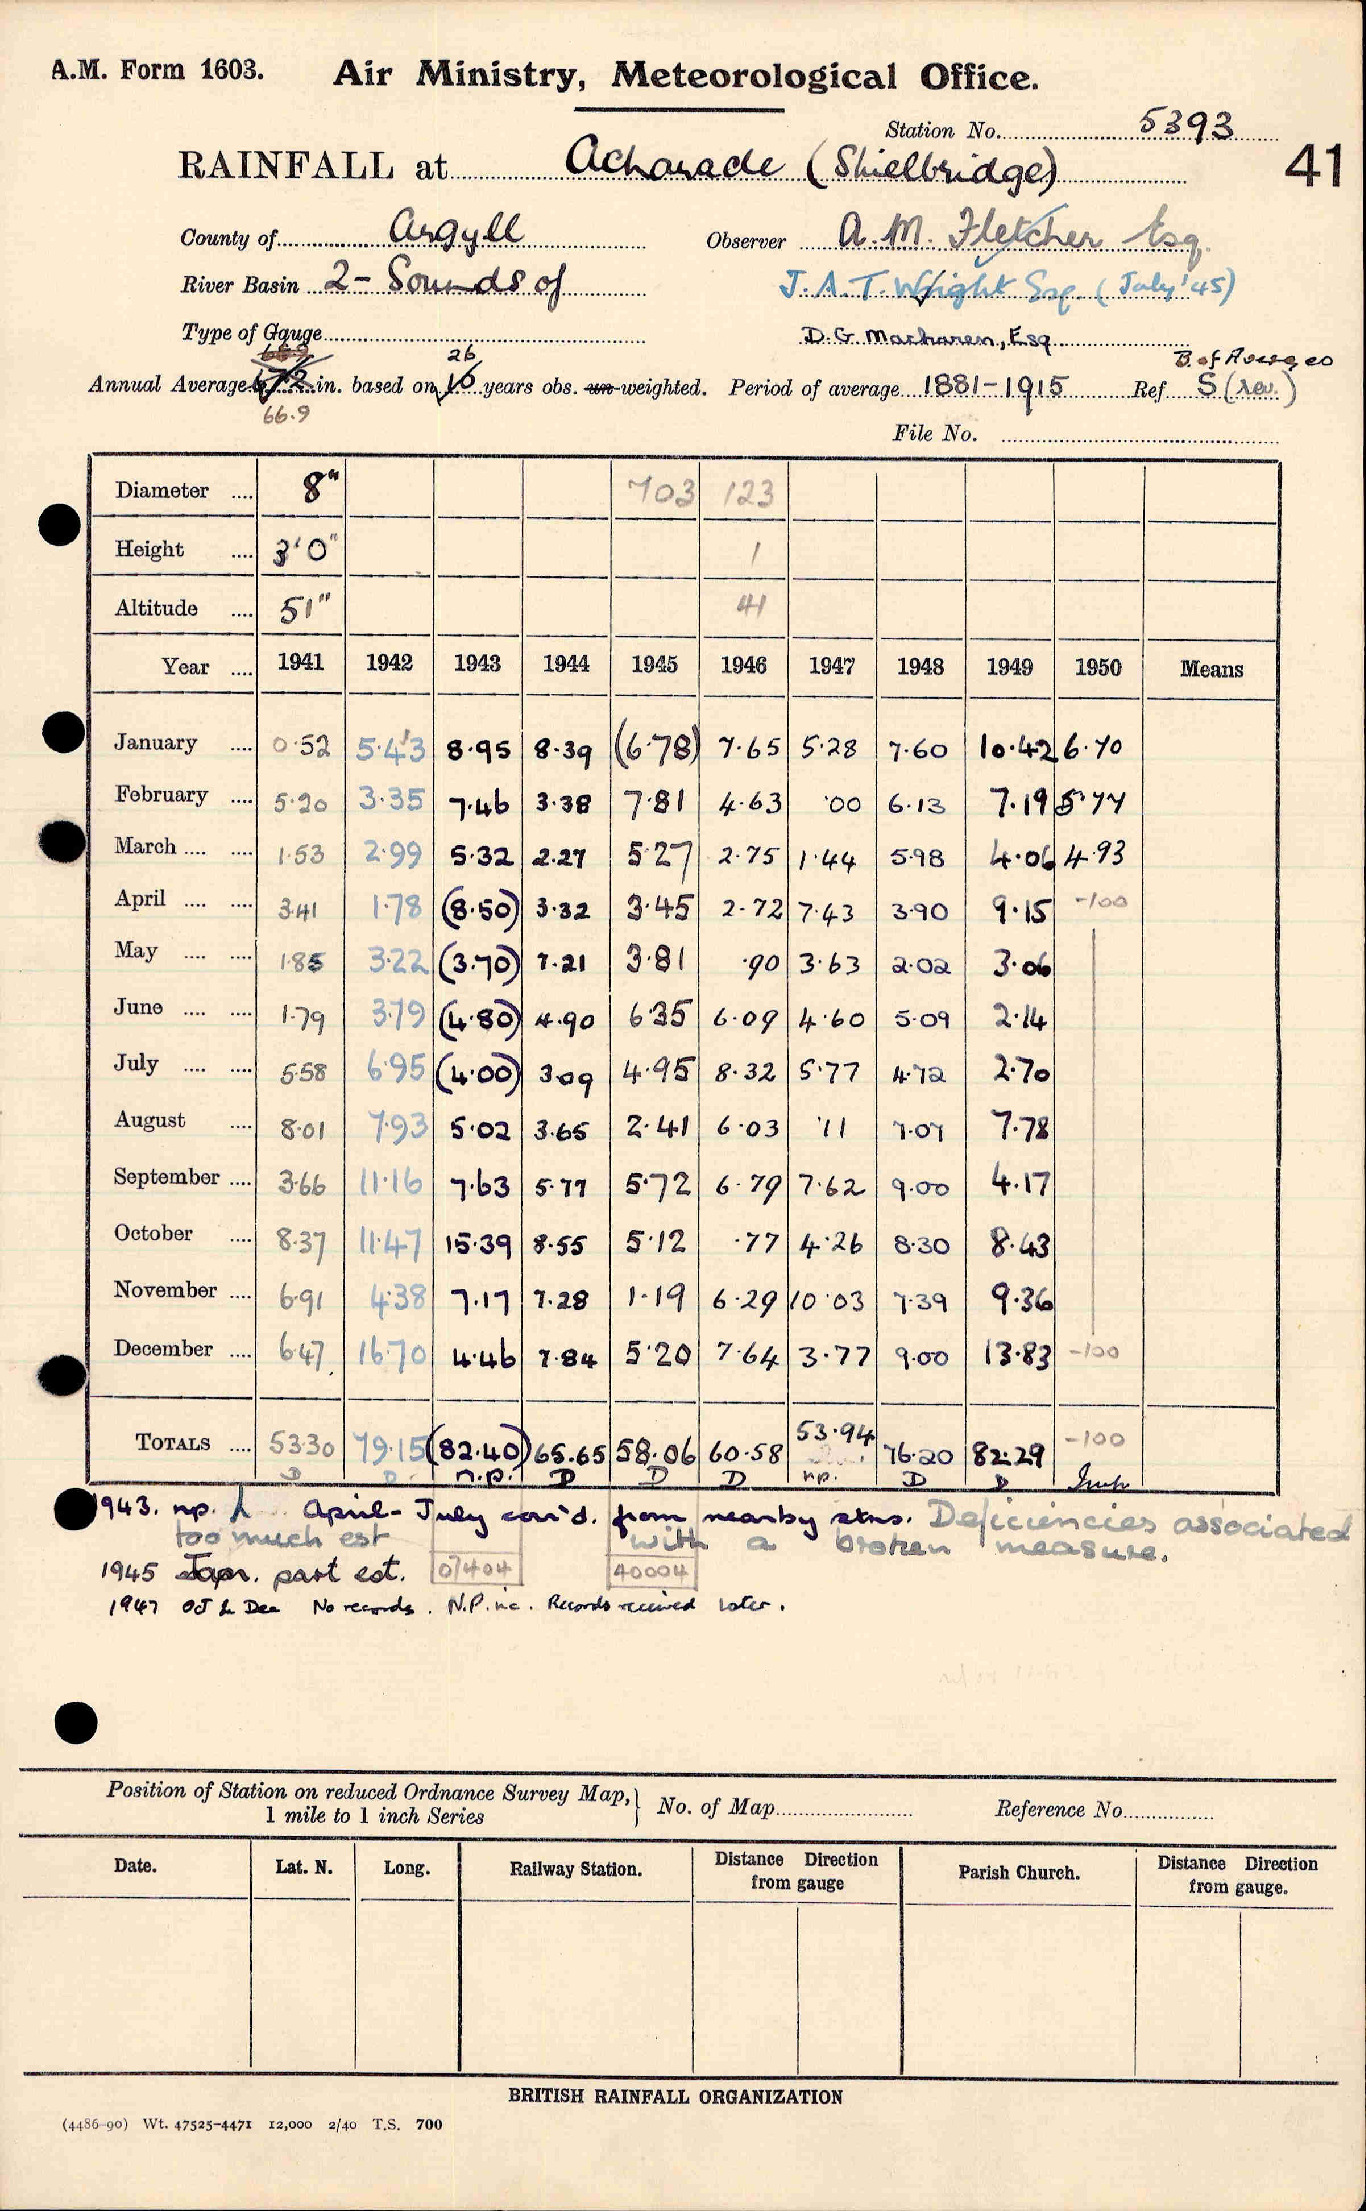 A.M. Form 1603. Air Ministry, Meteorological Office.
Station No. 5393
41
RAINFALL at Acharade (Shielbridge)
County of Argyll Observer A. M. Fletcher Esq.
River Basin 2 - Sounds of J. A. T. Wright Esq. (July '45)
Type of Gauge D. G. Maclaren, Esq
66.9 26 B. of Averages
Annual Average in. based on 10 years obs. un-weighted. Period of average 1881-1915 Ref S (rev.)
66.9
File No.
Diameter 8" 703 123
Height 3'0" 1
Altitude 51" 41
Year 1941 1942 1943 1944 1945 1946 1947 1948 1949 1950 Means
January 0.52 5.43 8.95 8.39 (6.78) 7.65 5.28 7.60 10.42 6.70
February 5.20 3.35 7.46 3.38 7.81 4.63 .00 6.13 7.19 5.77
March 1.53 2.99 5.32 2.27 5.27 2.75 1.44 5.98 4.06 4.93
April 3.41 1.78 (8.50) 3.32 3.45 2.72 7.43 3.90 9.15 -100
May 1.85 3.22 (3.70) 7.21 3.81 .90 3.63 2.02 3.06
June 1.79 3.79 (4.80) 4.90 6.35 6.09 4.60 5.09 2.14
July 5.58 6.95 (4.00) 3.09 4.95 8.32 5.77 4.72 2.70
August 8.01 7.93 5.02 3.65 2.41 6.03 .11 7.07 7.78
September 3.66 11.16 7.63 5.77 5.72 6.79 7.62 9.00 4.17
October 8.37 11.47 15.39 8.55 5.12 .77 4.26 8.30 8.43
November 6.91 4.38 7.17 7.28 1.19 6.29 10.03 7.39 9.36
December 6.47 16.70 4.46 7.84 5.20 7.64 3.77 9.00 13.83 -100
TOTALS 53.30 79.15 (82.40) 65.65 58.06 60.58 53.94 76.20 82.29 -100
D D n.p. D D D n.p. D D Imp
1943. np. April - July con'd. from nearby stns. Deficiencies associated
too much est with a broken measure.
1945 Jan. part est. 07404 40004
1947 Oct & Dec No records. N.P. inc. Records received later.
Position of Station on reduced Ordnance Survey Map,
1 mile to 1 inch Series
No. of Map Reference No.
Date. Lat. N. Long. Railway Station. Distance Direction from gauge Parish Church. Distance Direction from gauge.
BRITISH RAINFALL ORGANIZATION
(4486-90) Wt. 47525-4471 12,000 2/40 T.S. 700